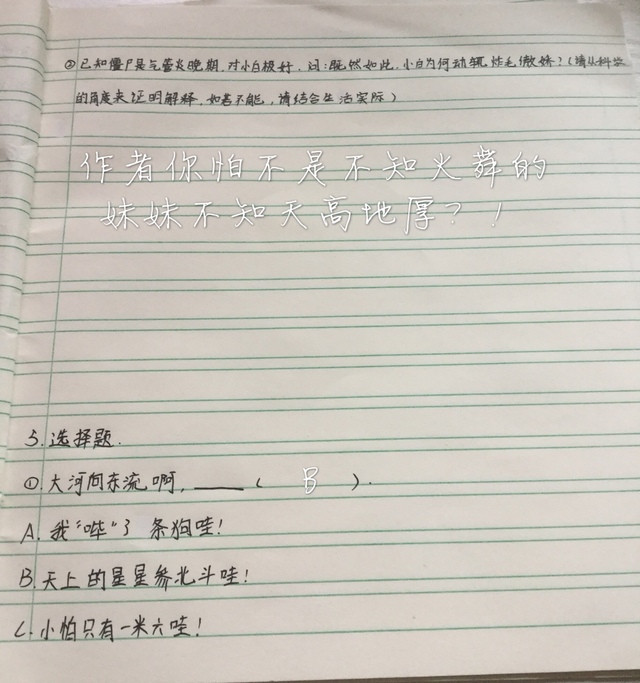 ②已知僵尸是气管炎晚期,对小白极好,问:既然如此,小白为何动辄炸毛傲娇?(请从科学
的角度来证明解释,如若不能,请结合生活实际)
作者你怕不是不知火舞的
妹妹不知天高地厚?!
5.选择题.
①大河向东流啊,____( B ).
A.我"哔"了条狗哇!
B.天上的星星参北斗哇!
C.小怕只有一米六哇!